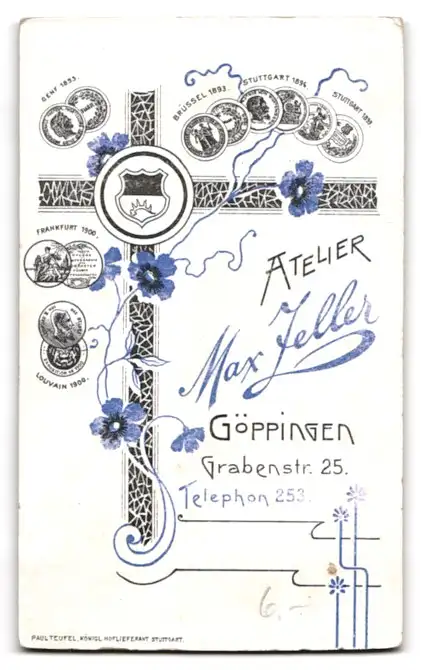 GENF 1893.
BRÜSSEL 1893.
STUTTGART 1894.
STUTTGART 1899.
FRANKFURT 1900.
LOUVAIN 1900.
ATELIER
Max Zeller
GÖPPINGEN
Grabenstr. 25.
Telephon 253.
6.-
PAUL TEUFEL, KÖNIGL HOFLIEFERANT STUTTGART.